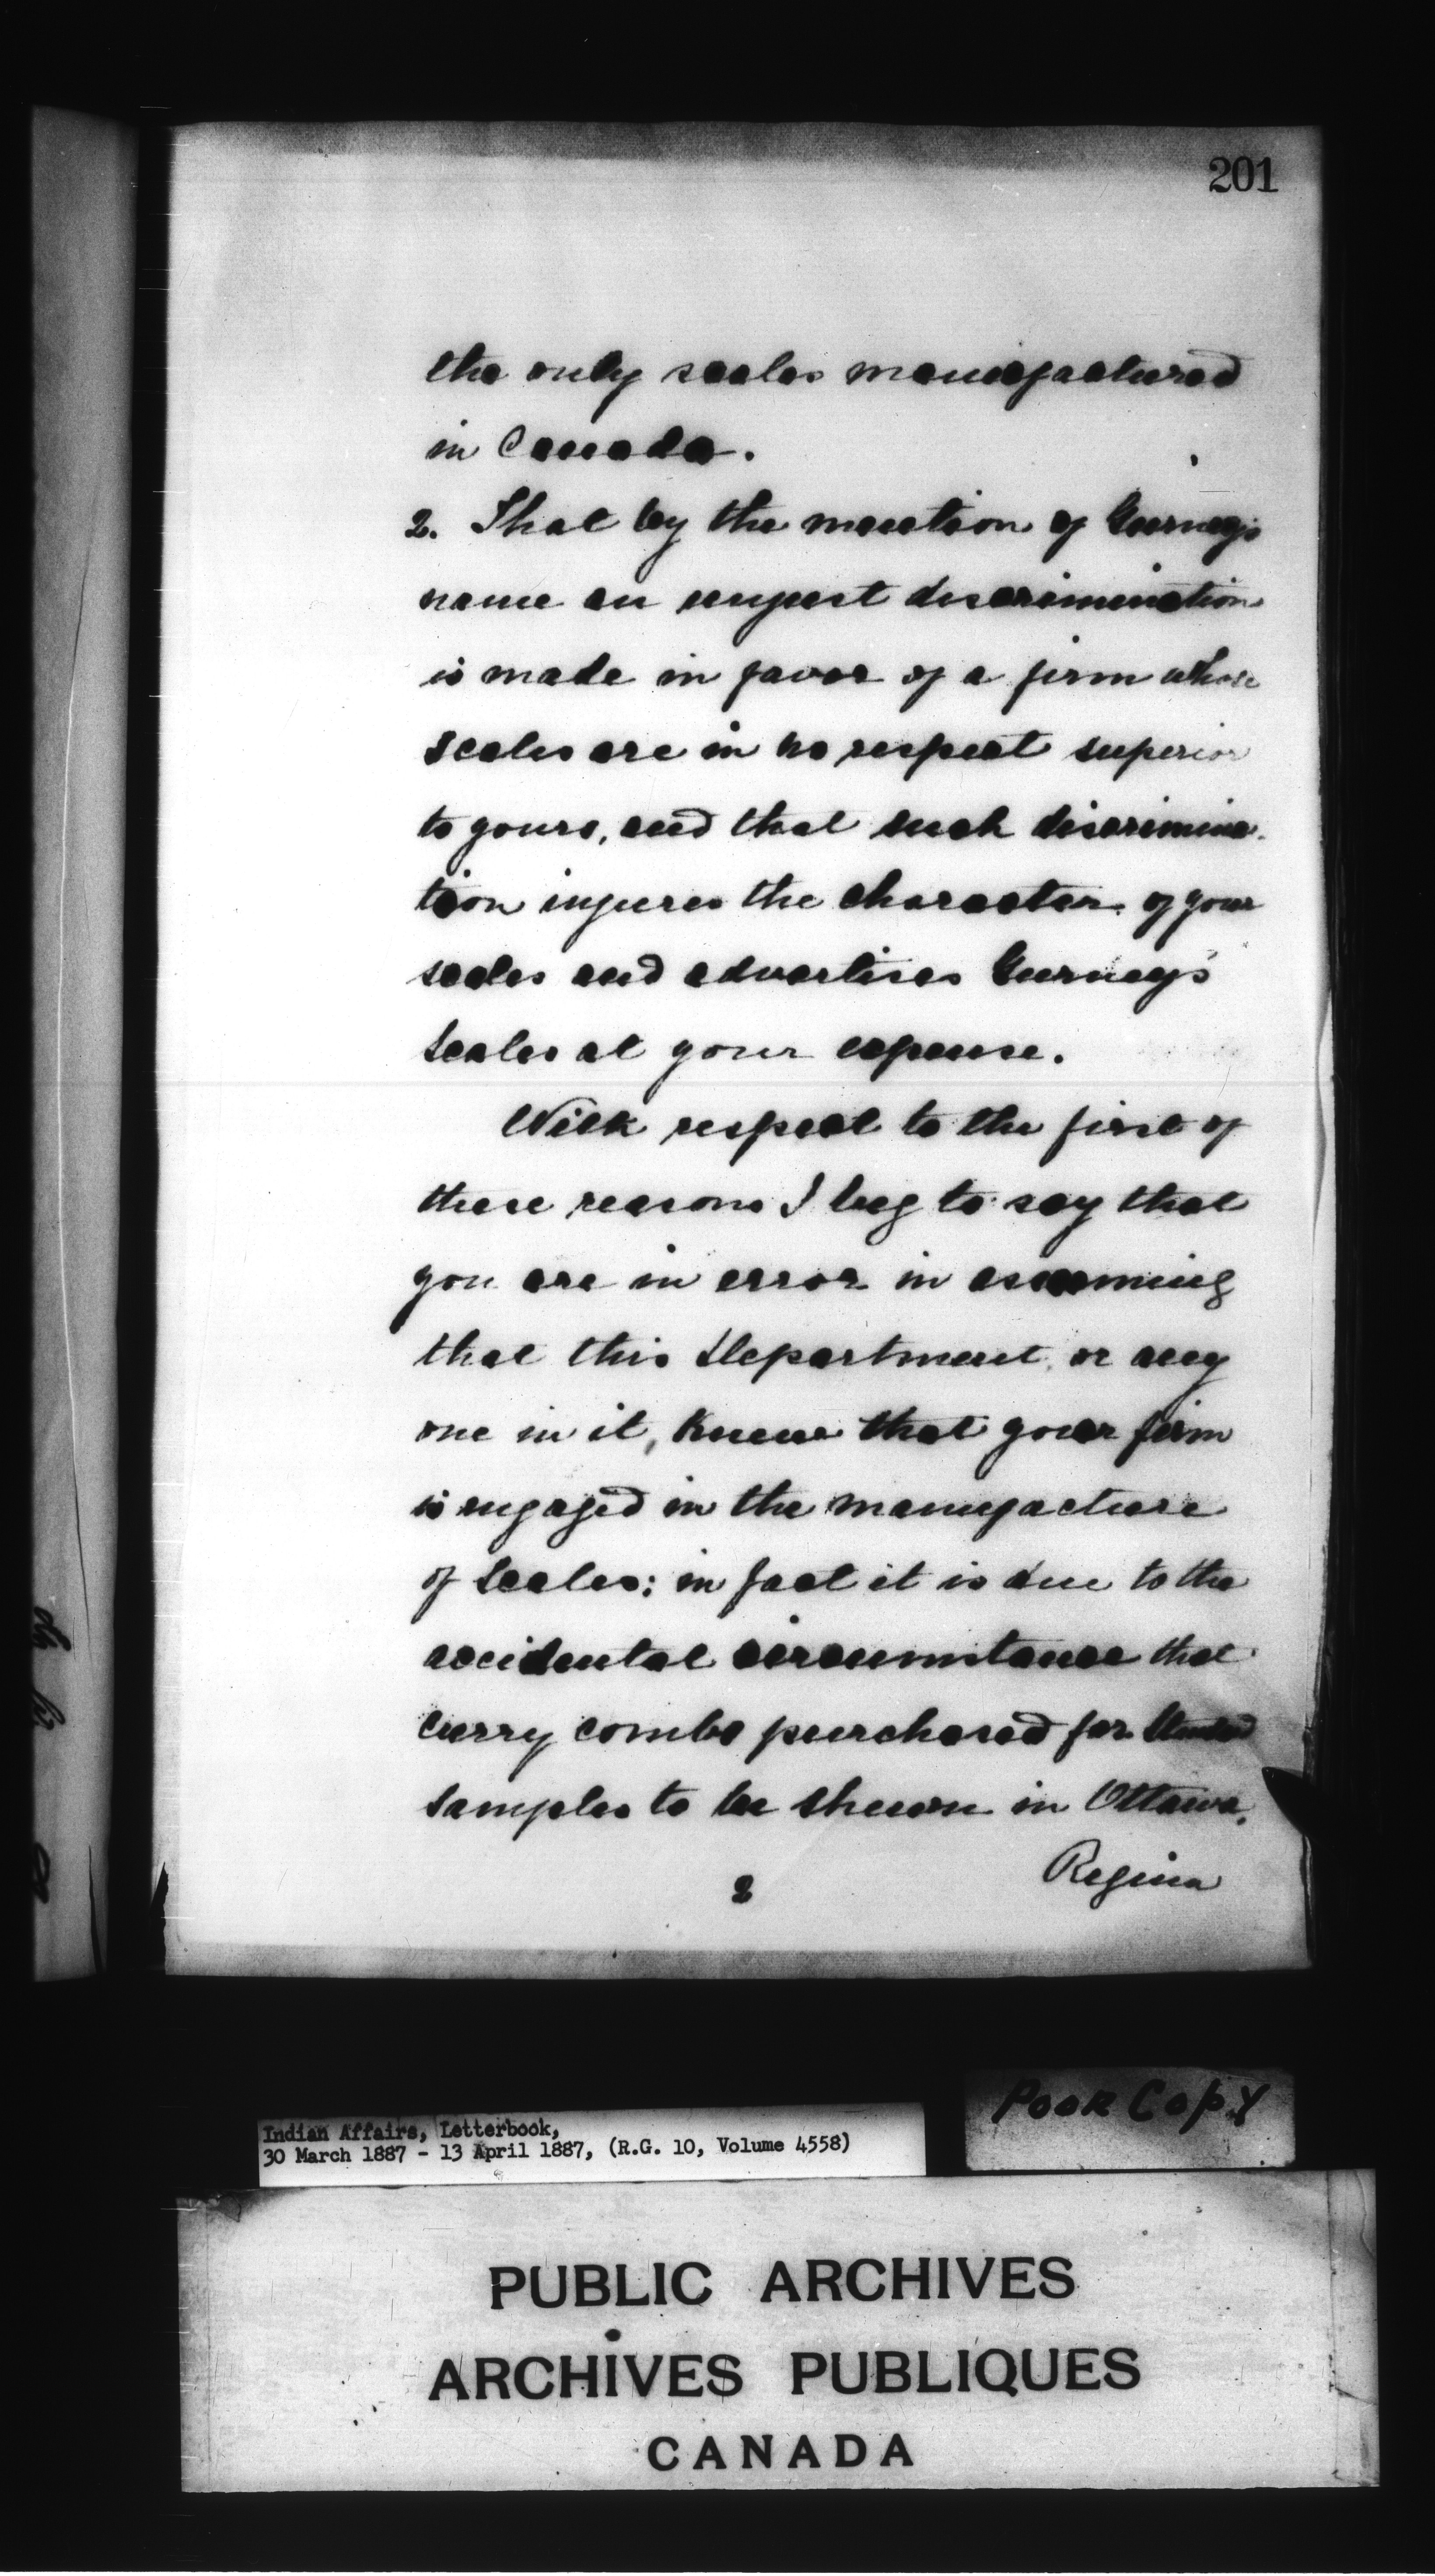 201
the only scales manufactured
in Canada.
2. That by the mention of Gurney's
name an unjust discrimination
is made in favor of a firm whose
scales are in no respect superior
to yours, and that such discrimina-
tion injures the character of your
scales and advertises Gurney's
scales at your expense.
With respect to the first of
these reasons I beg to say that
you are in error in assuming
that this Department, or any
one in it, knew that your firm
is engaged in the manufacture
of scales; in fact it is due to the
accidental circumstance that
curry combs purchased for
samples to be shewn in Ottawa,
Regina
2
Indian Affairs, Letterbook,
30 March 1887 - 13 April 1887, (R.G. 10, Volume 4558)
POOR COPY
PUBLIC ARCHIVES
ARCHIVES PUBLIQUES
CANADA